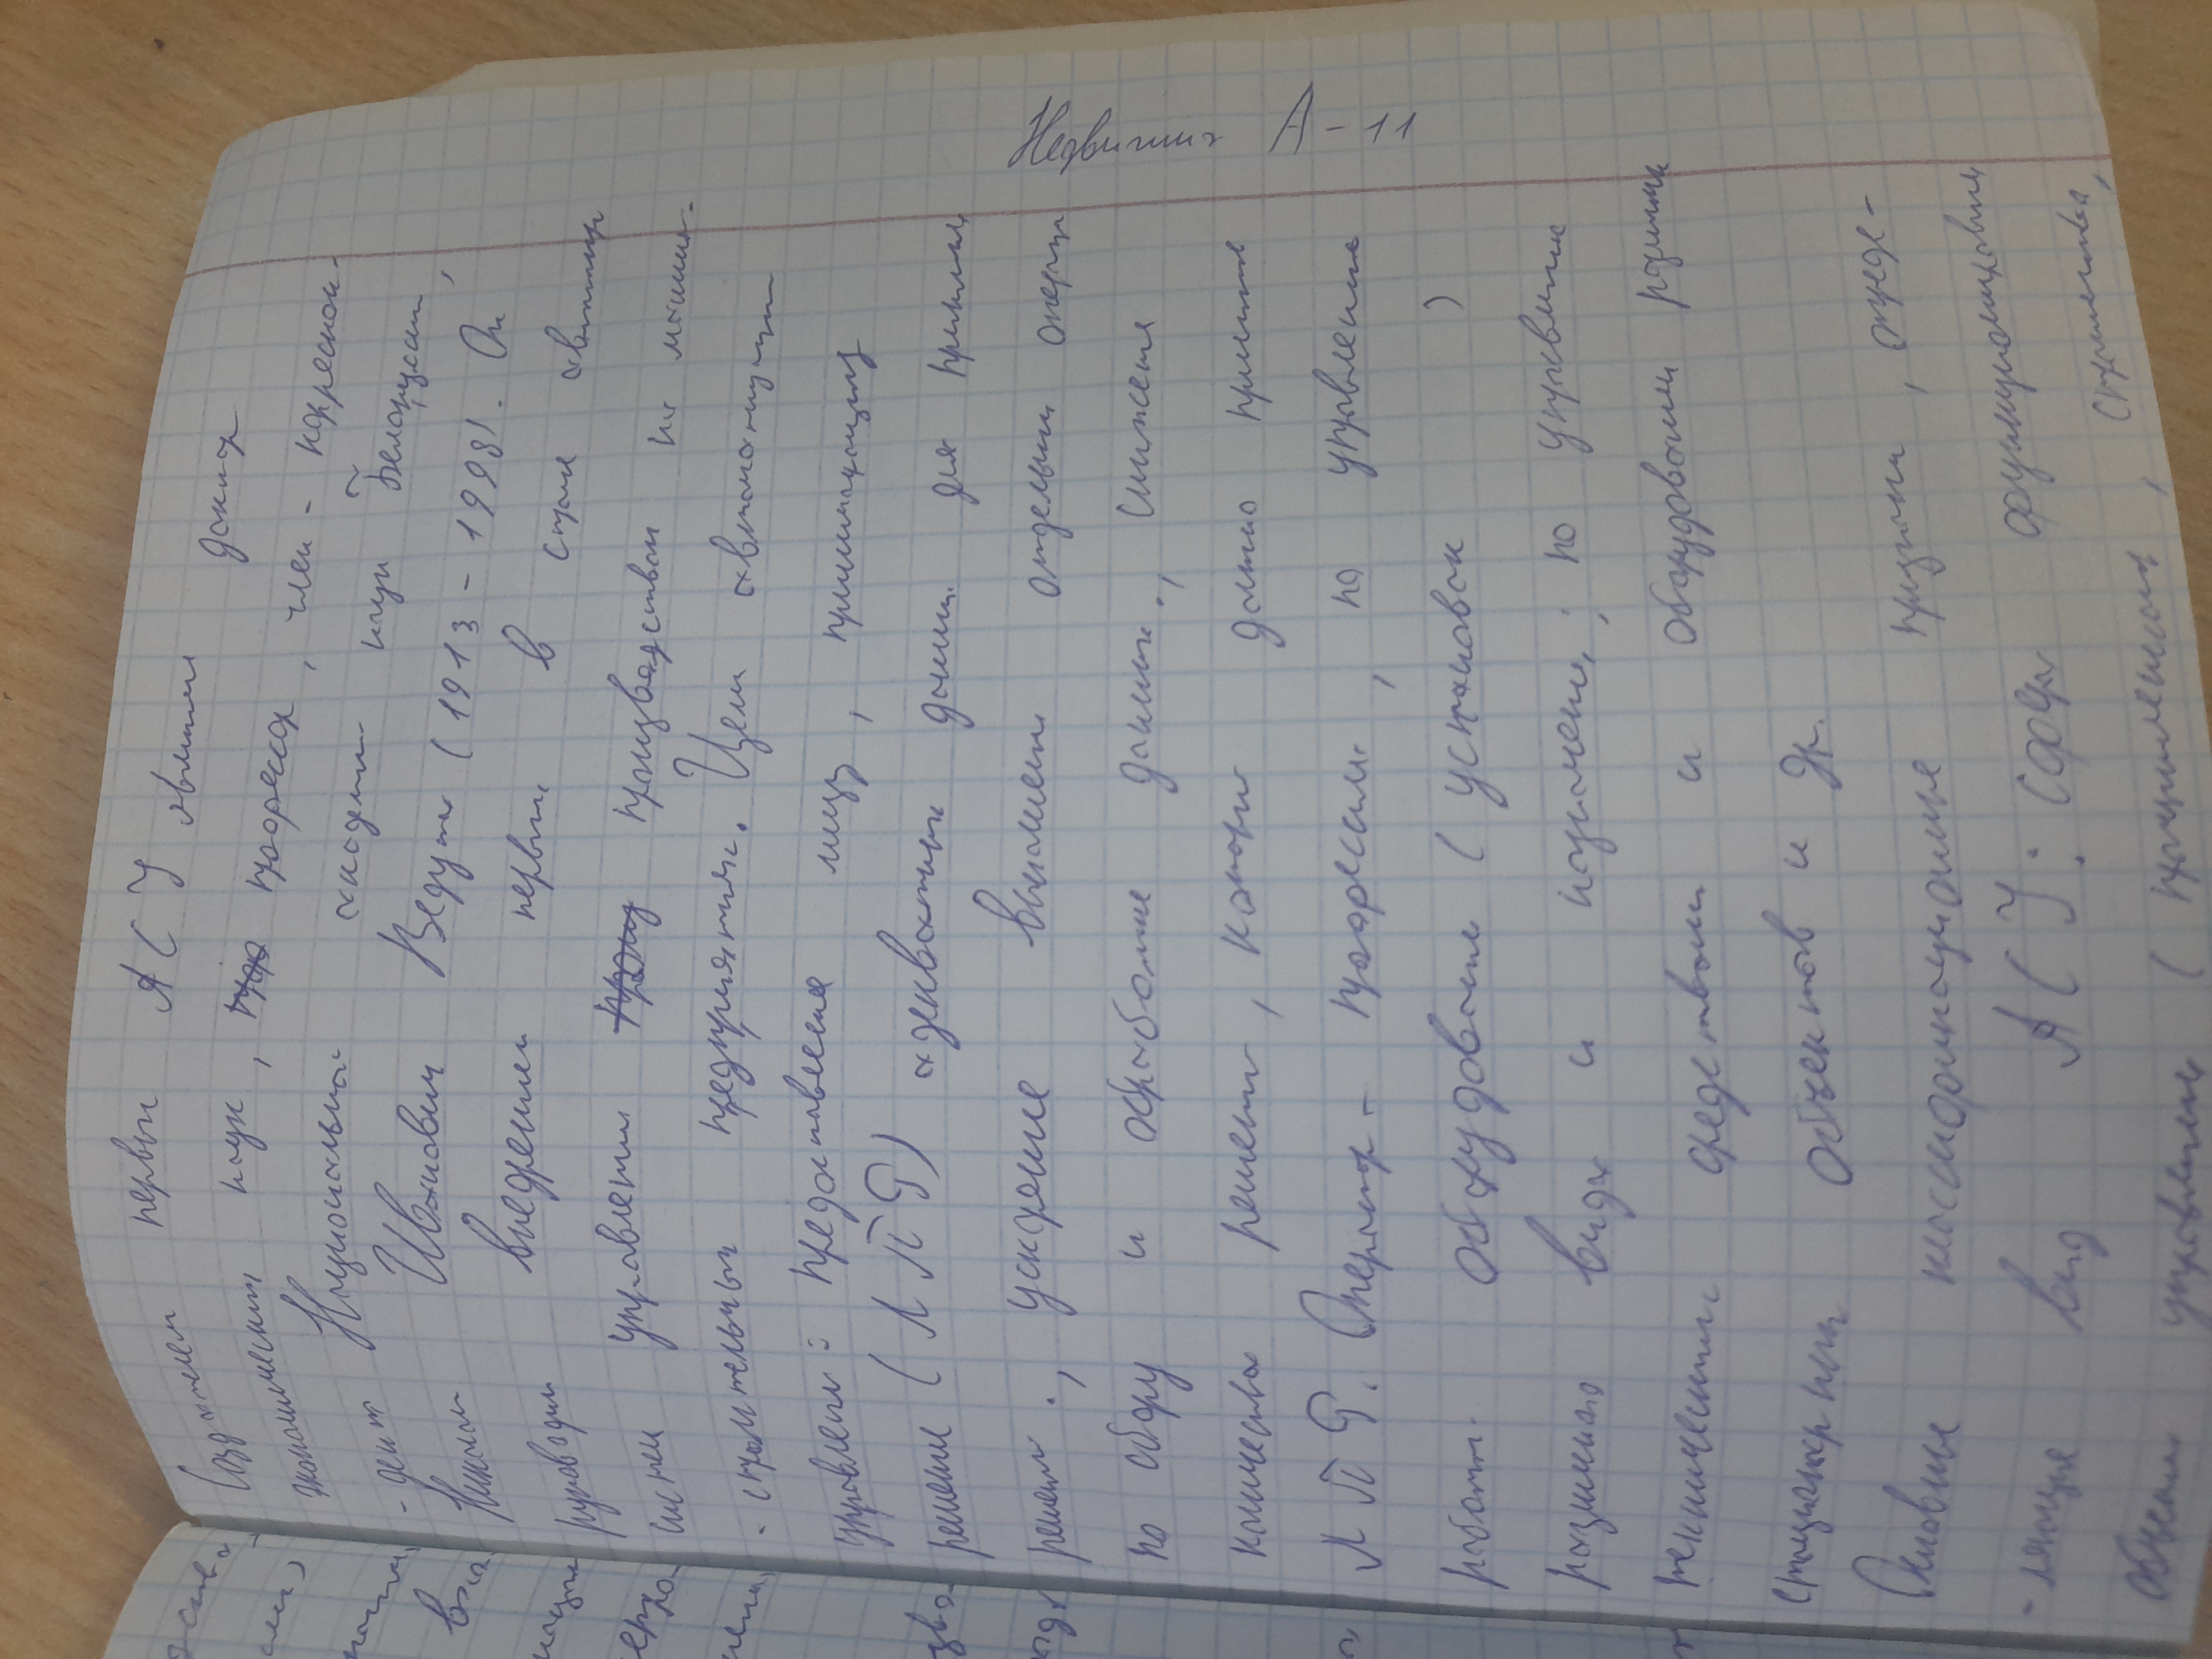 Недвигина А-11
Создателем первых АСУ является доктор
экономических наук, профессор, член-корреспон-
-дент Национальной академии наук Белоруссии,
Николай Иванович Ведута (1913-1998). Он
руководил внедрением первых в стране автоматизир
систем управления производством на машин.
-строительных предприятиях. Цели автоматизации
управления: предоставление лицу, принимающему
решение (ЛПР) адекватных данных для принятия
решения; ускорение выполнения отдельных операций
по сбору и обработке данных; снижение
количества решений, которые должно принимать
ЛПР. Оператор - профессия, по управлению
работы оборудования (установок)
различного вида и назначения; по управлению
техническими средствами и оборудованием различных
стационарных объектов и др.
Основные классификационные признаки, опреде-
-ляющие вид АСУ: сфера функционирования
объекта управления (промышленность, строительство,